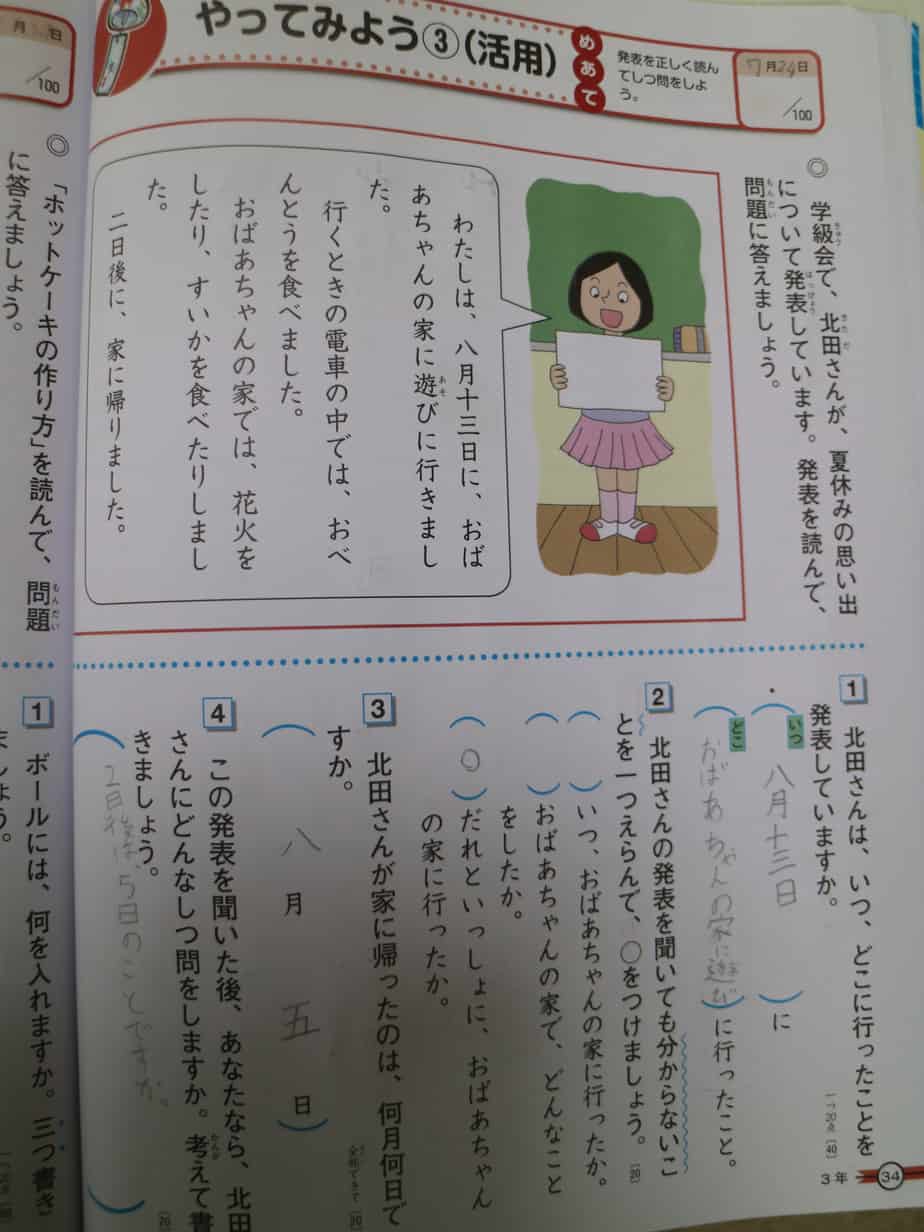 やってみよう③(活用)
めあて
発表を正しく読ん
でしつ問をしよ
う。
7月24日
/100
◎ 学級会で、北田さんが、夏休みの思い出
について発表しています。発表を読んで、
問題に答えましょう。
わたしは、八月十三日に、おば
あちゃんの家に遊びに行きまし
た。
行くときの電車の中では、おべ
んとうを食べました。
おばあちゃんの家では、花火を
したり、すいかを食べたりしまし
た。
二日後に、家に帰りました。
1 北田さんは、いつ、どこに行ったことを
発表していますか。
一つ20点〔40〕
いつ
(八月十三日)に
どこ
(おばあちゃんの家に遊び)に行ったこと。
2 北田さんの発表を聞いても分からないこ
とを一つえらんで、○をつけましょう。
〔20〕
( )いつ、おばあちゃんの家に行ったか。
( )おばあちゃんの家で、どんなこと
をしたか。
(○)だれといっしょに、おばあちゃん
の家に行ったか。
3 北田さんが家に帰ったのは、何月何日で
すか。
(八月五日)
4 この発表を聞いた後、あなたなら、北田
さんにどんなしつ問をしますか。考えて書
きましょう。
〔20〕
(2日後は、5日のことですか。)
3年
34
月 日
/100
◎ 「ホットケーキの作り方」を読んで、問題
に答えましょう。
1 ボールには、何を入れますか。三つ書き
ましょう。